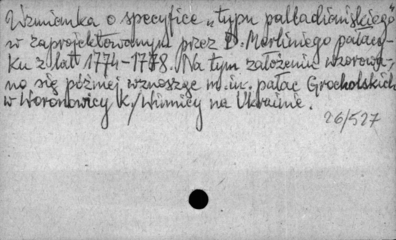 Wzmianka o specyfice „typu palladiańskiego"
w zaprojektowanym przez D. Merliniego pałacy-
ku z lat 1774-1778. Na tym założeniu wzorowa-
no się później wznosząc m.in. pałac Grocholskich
w Woronowicy k/Winnicy na Ukrainie.
26/527